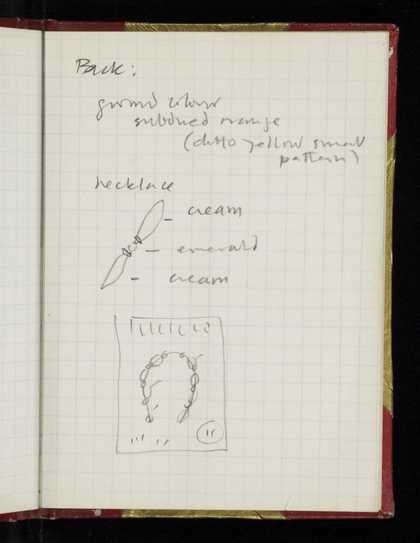 Back:
ground colour
subdued orange
(ditto yellow small
pattern)
necklace
cream
emerald
cream